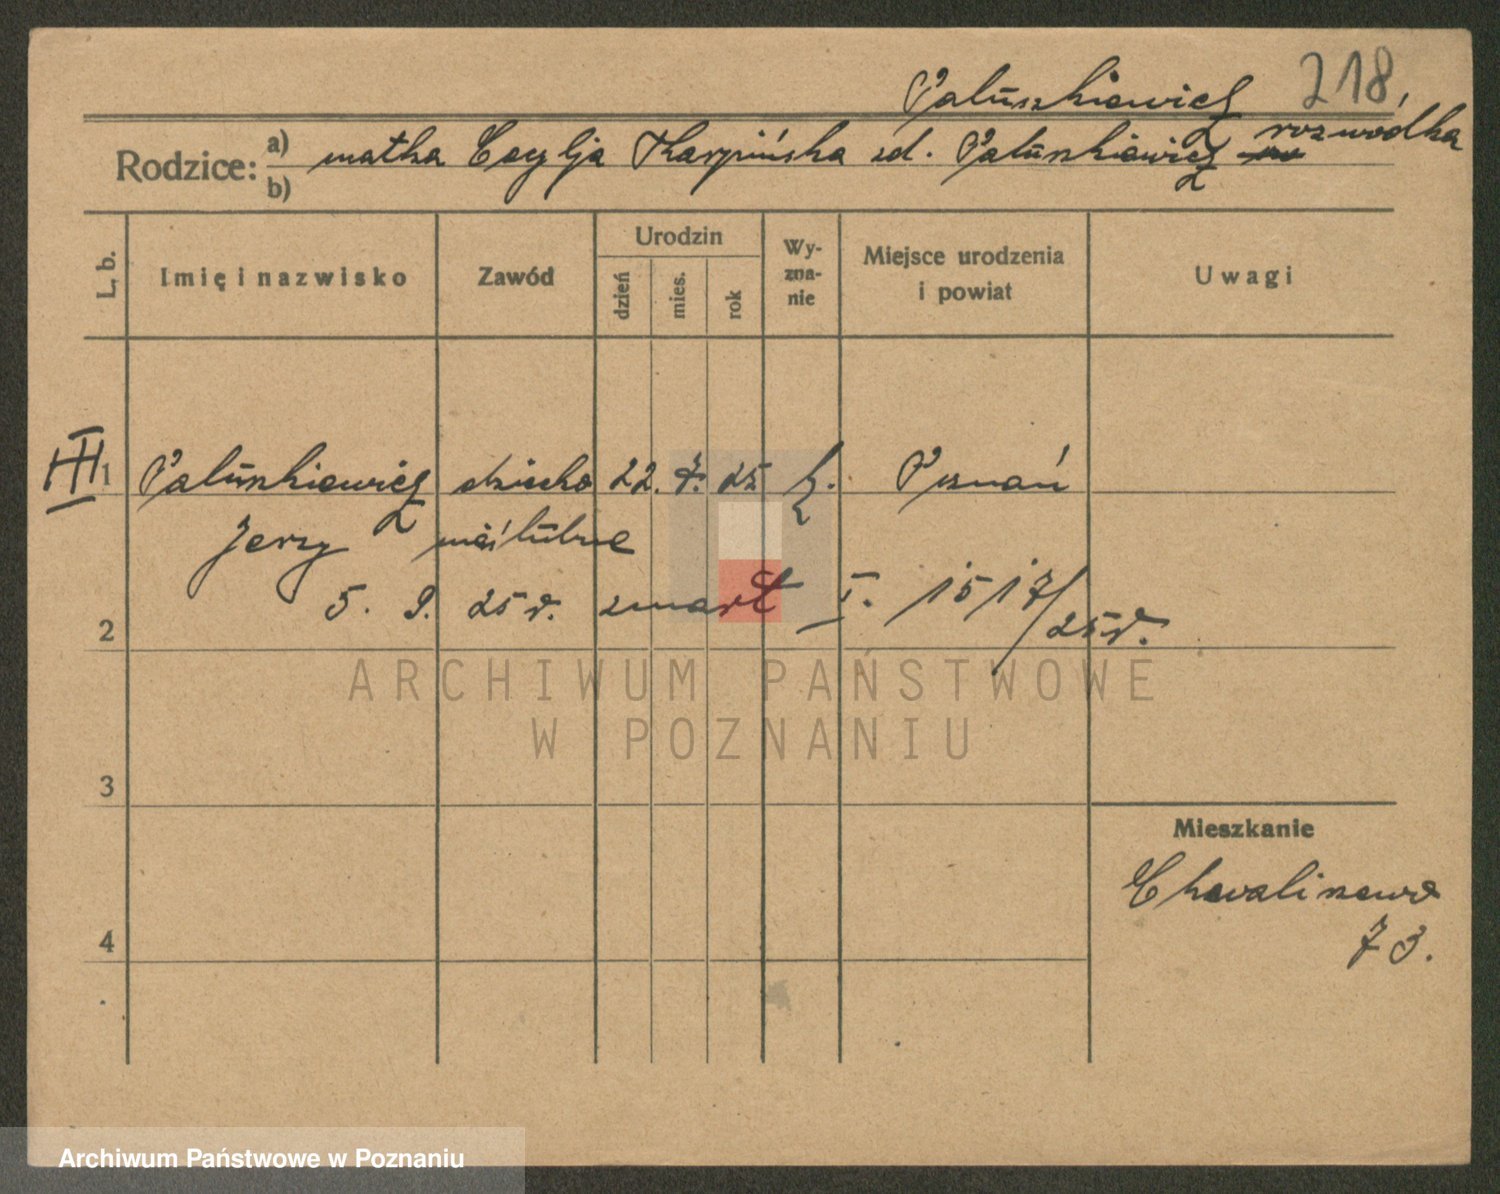 Paluszkiewicz 218.
Rodzice: a) matka Cecylja Karpińska zd. Paluszkiewicz rozwódka
b)
L. b. Imię i nazwisko Zawód Urodzin dzień mies. rok Wyznanie Miejsce urodzenia i powiat Uwagi
III 1 Paluszkiewicz dziecko 22. 7. 25 k. Poznań
Jerzy nieślubne
5. 9. 25 r. zmarł I. 1517/25 r.
2
ARCHIWUM PAŃSTWOWE
W POZNANIU
3
Mieszkanie
Chwaliszewo
73.
4
Archiwum Państwowe w Poznaniu